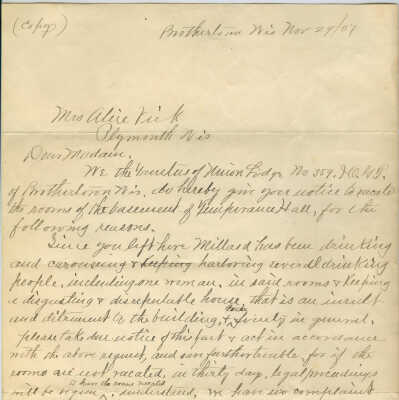 (Copy)
Brothertown Wis Nov 29/07
Mrs Alice Vick
Plymouth Wis
Dear Madam.
We the Trustees of Union Lodge No 359. I.O.G.T.
of Brothertown Wis. do hereby give you notice to vacate
the rooms of the basement of Temperance Hall, for the
following reasons.
Since you left here Millard has been drinking
and carousing & keeping harboring several drinking
people, including one woman, in said rooms & keeping
a disgusting & disreputable house, that is an insult
and detriment to the building, & society in general.
please take due notice of this fact & act in accordance
with the above request, and save further trouble, for if the
rooms are not vacated, in thirty days, legal proceedings
to have the rooms vacated
will be begun, understand, we have no complaint